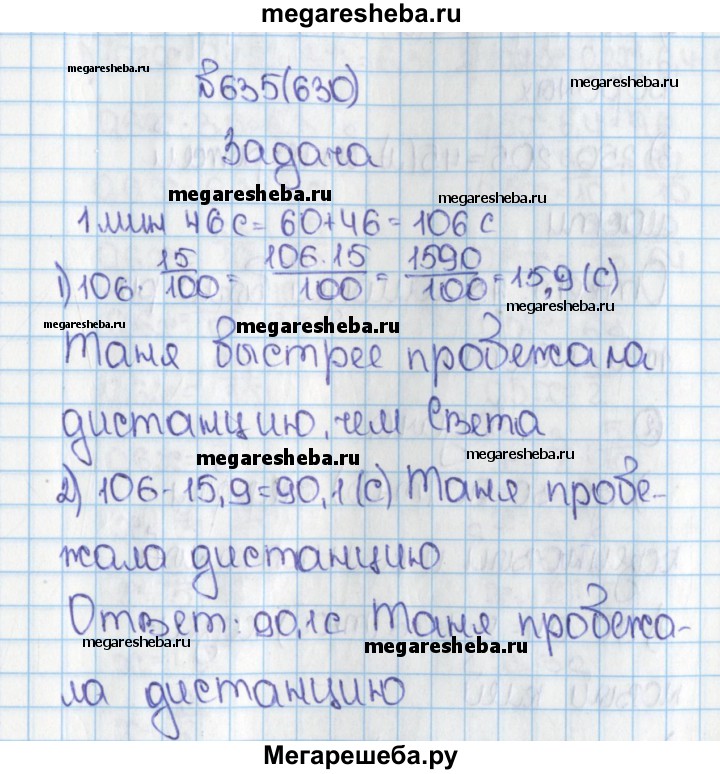 megaresheba.ru
№635(630)
megaresheba.ru
megaresheba.ru
Задача
megaresheba.ru
1 мин 46 с = 60+46 = 106 с
1) 106 · 15/100 = 106·15/100 = 1590/100 = 15,9 (с)
megaresheba.ru
megaresheba.ru
megaresheba.ru
Таня быстрее пробежала
дистанцию, чем Света
megaresheba.ru
2) 106-15,9=90,1 (с) Таня пробе-
жала дистанцию
Ответ: 90,1с Таня пробежа-
megaresheba.ru
megaresheba.ru
ла дистанцию
Мегарешеба.ру